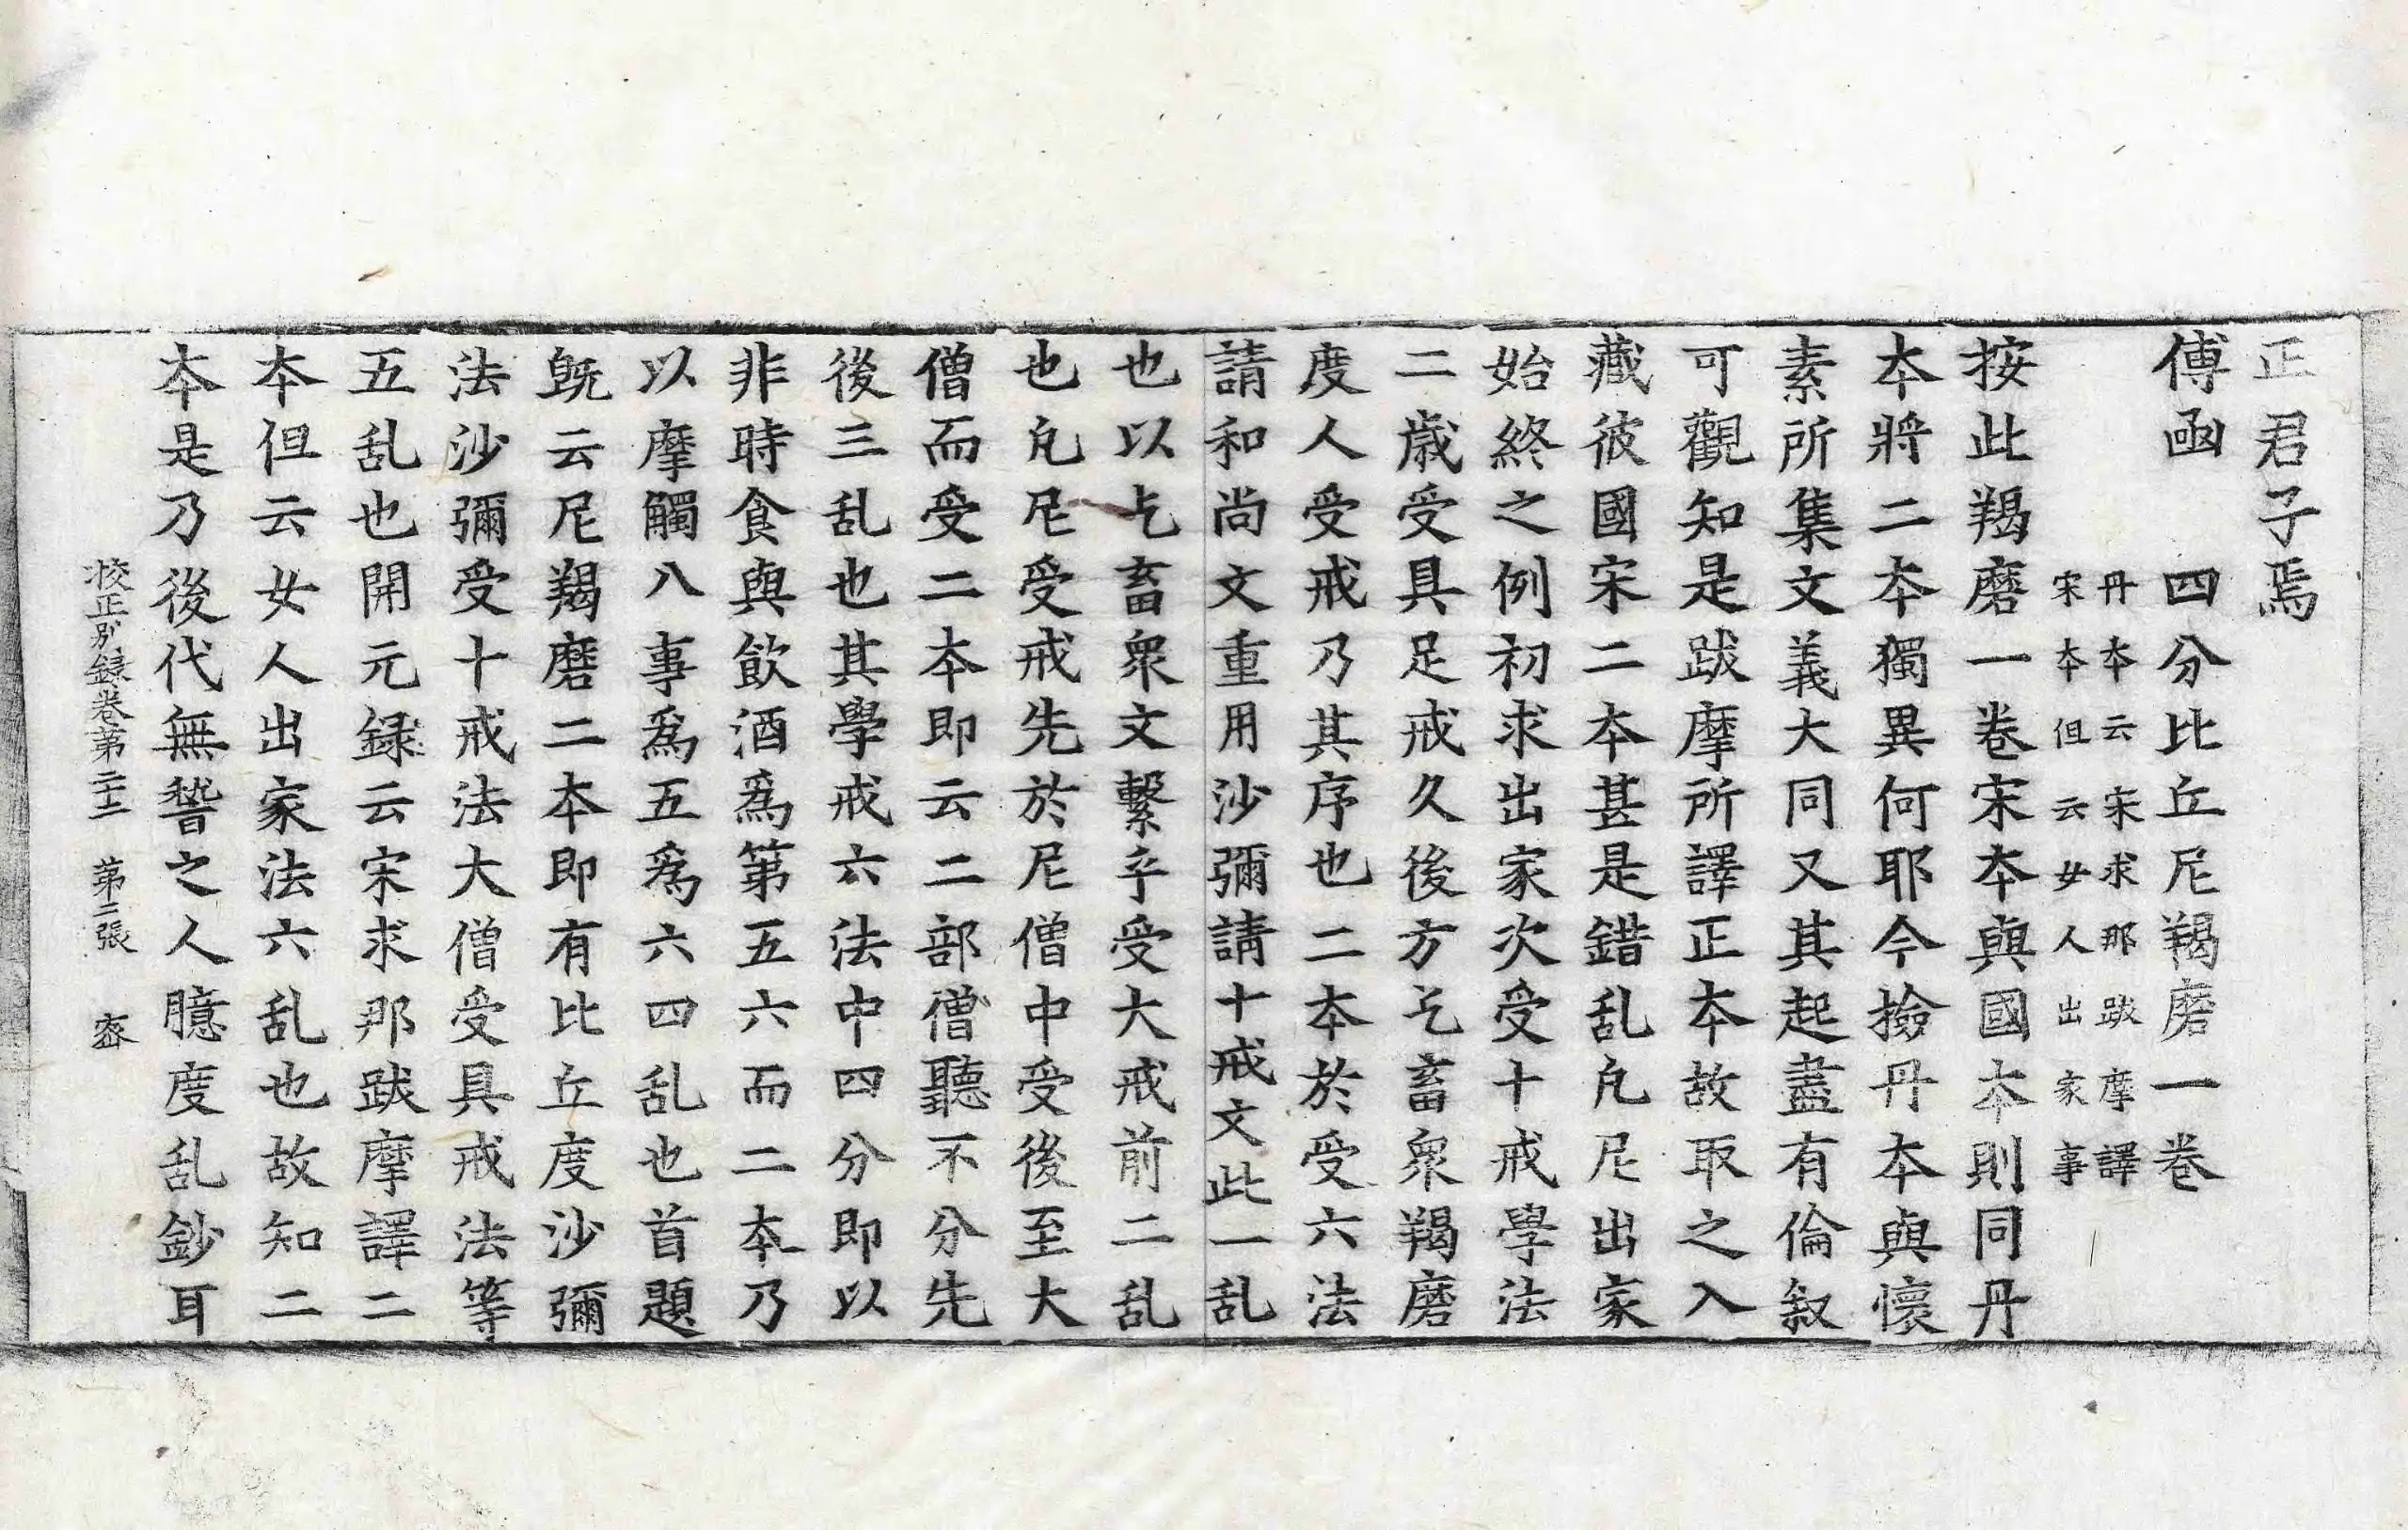 正君子焉
傅函　四分比丘尼羯磨一卷
丹本云宋求那跋摩譯
宋本但云女人出家事
按此羯磨一卷宋本與國本則同丹
本將二本獨異何耶今撿丹本與懷
素所集文義大同又其起盡有倫叙
可觀知是跋摩所譯正本故取之入
藏彼國宋二本甚是錯乱凢尼出家
始終之例初求出家次受十戒學法
二歳受具足戒久後方乞畜衆羯磨
度人受戒乃其序也二本於受六法
請和尚文重用沙彌請十戒文此一乱
也以乞畜衆文繫乎受大戒前二乱
也凢尼受戒先於尼僧中受後至大
僧而受二本即云二部僧聽不分先
後三乱也其學戒六法中四分即以
非時食與飲酒爲第五六而二本乃
以摩觸八事爲五爲六四乱也首題
旣云尼羯磨二本即有比丘度沙彌
法沙彌受十戒法大僧受具戒法等
五乱也開元録云宋求那跋摩譯二
本但云女人出家法六乱也故知二
本是乃後代無誓之人臆度乱鈔耳
校正别録卷苐二十二　苐二張　宻